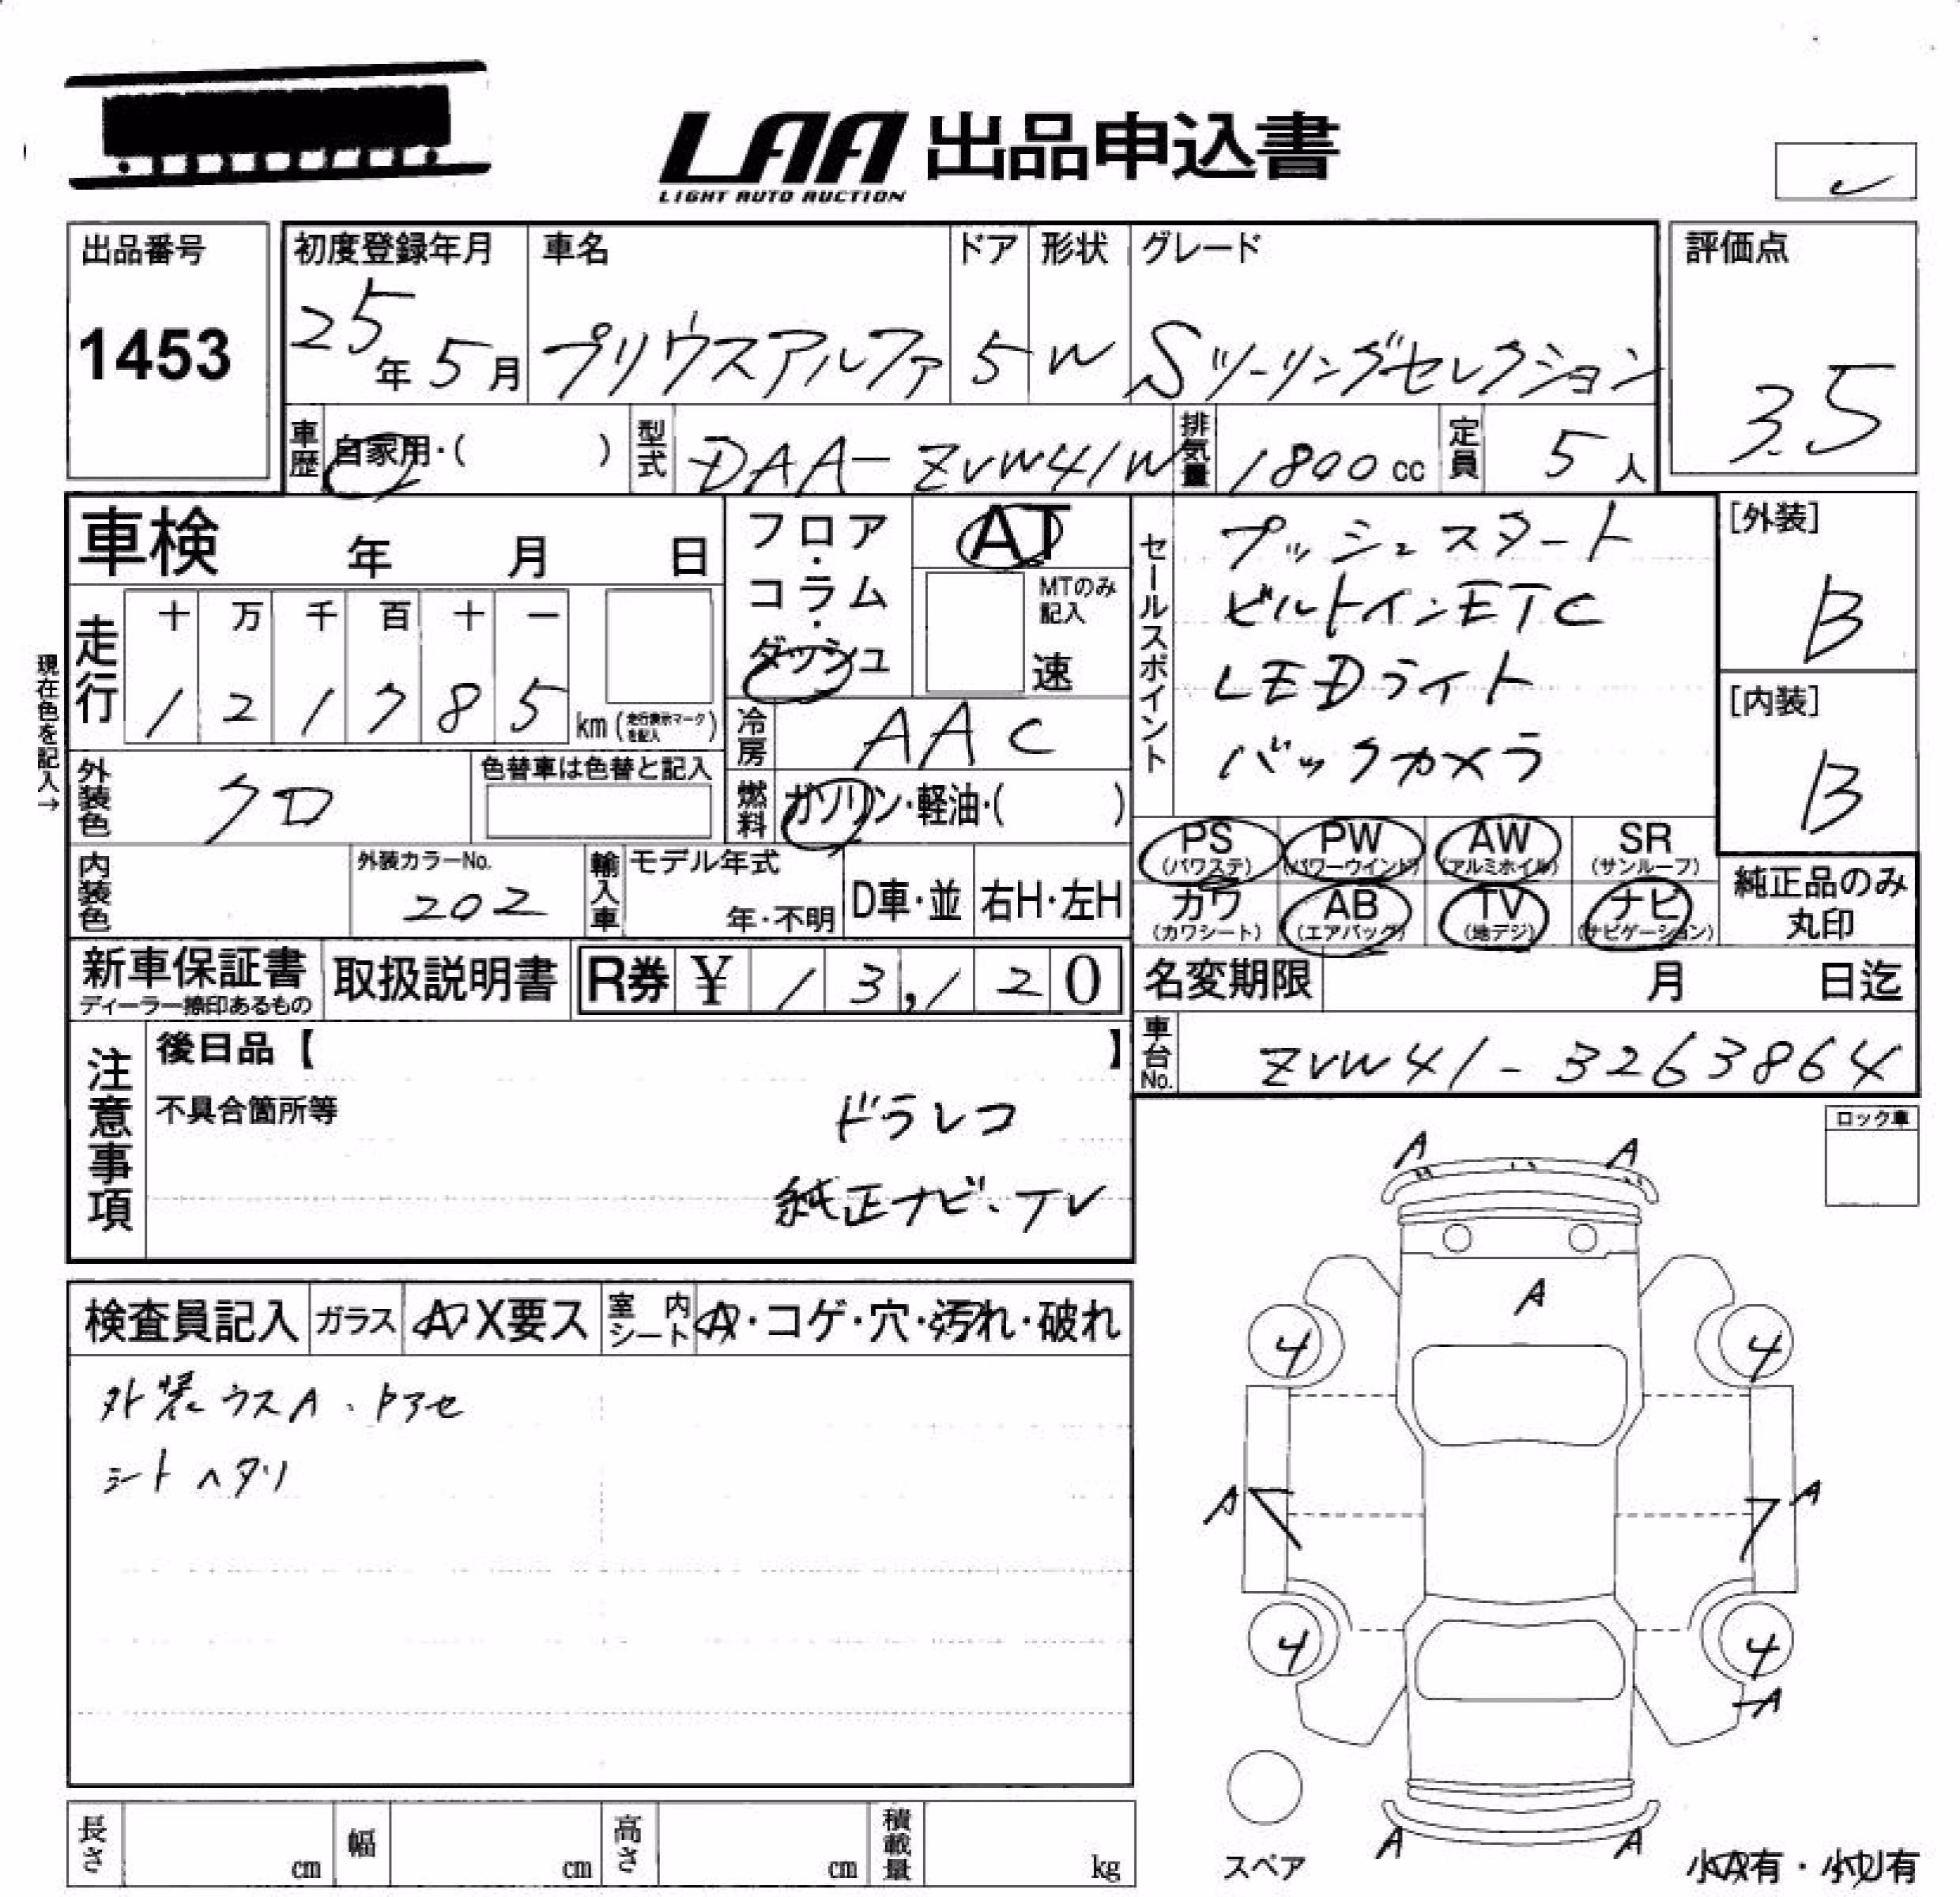 LAA 出品申込書
LIGHT AUTO AUCTION
出品番号
1453
初度登録年月
25年5月
車名
プリウスアルファ
ドア
5
形状
W
グレード
Sツーリングセレクション
評価点
3.5
車歴
自家用・( )
型式
DAA-ZVW41W
排気量
1800cc
定員
5人
車検 年 月 日
フロア・コラム・ダッシュ
AT
MTのみ記入
速
セールスポイント
プッシュスタート
ビルトインETC
LEDライト
バックカメラ
[外装]
B
[内装]
B
現在色を記入→
走行
十 万 千 百 十 一
1 2 1 7 8 5 km (走行表示マークを記入)
冷房
AAC
外装色
クロ
色替車は色替と記入
燃料
ガソリン・軽油・( )
PS (パワステ)
PW (パワーウインド)
AW (アルミホイル)
SR (サンルーフ)
カワ (カワシート)
AB (エアバッグ)
TV (地デジ)
ナビ (ナビゲーション)
純正品のみ丸印
内装色
外装カラーNo.
202
輸入車
モデル年式
年・不明
D車・並
右H・左H
新車保証書
ディーラー捺印あるもの
取扱説明書
R券 ¥ 13,120
名変期限 月 日迄
車台No.
ZVW41-3263864
注意事項
後日品【 】
不具合箇所等
ドラレコ
純正ナビ・TV
ロック車
検査員記入
ガラス
A X要ス
室内シート
A・コゲ・穴・汚れ・破れ
外装ウスA・ドアセ
シートヘタリ
A A
A
4 4
A A
4 4
A
A A
スペア
小A有・小U有
長さ cm
幅 cm
高さ cm
積載量 kg